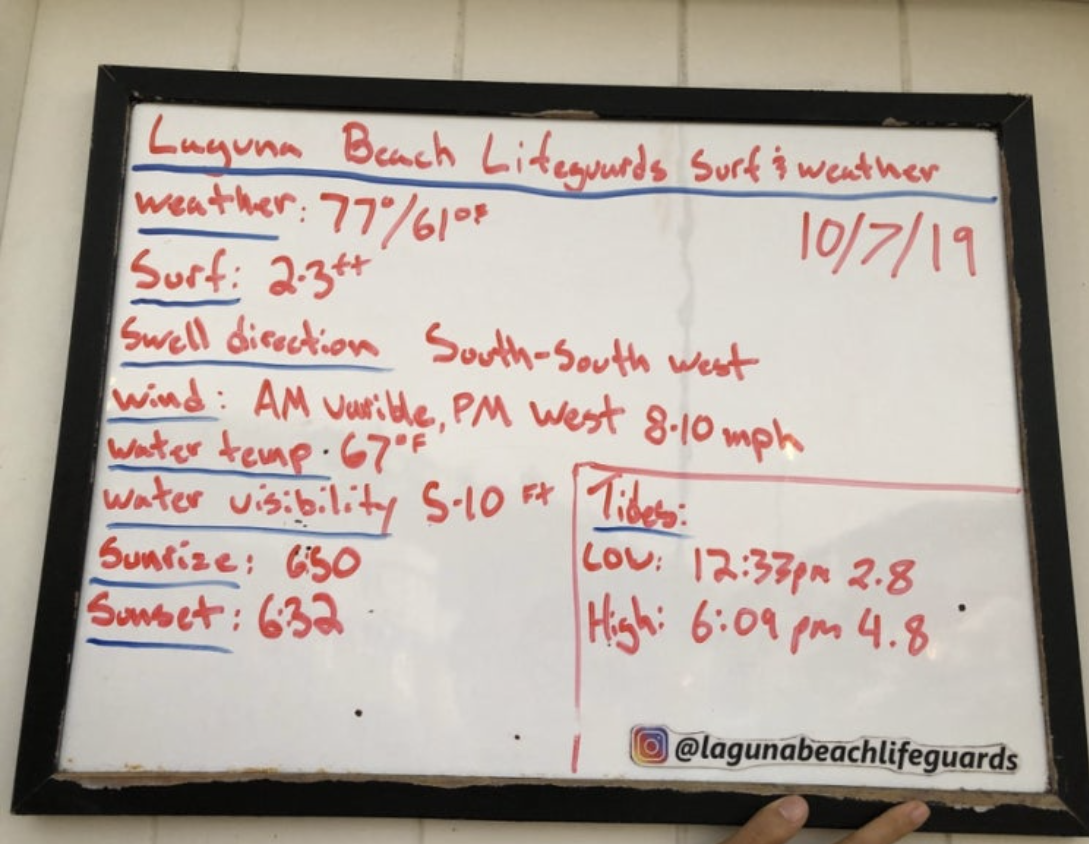 Laguna Beach Lifeguards Surf & weather
weather: 77°/61°F
10/7/19
Surf: 2-3ft
Swell direction South-South west
wind: AM varible, PM West 8-10 mph
water temp. 67°F
water visibility 5-10 FT
Sunrize: 6:50
Sunset: 6:32
Tides:
Low: 12:33pm 2.8
High: 6:09 pm 4.8
@lagunabeachlifeguards